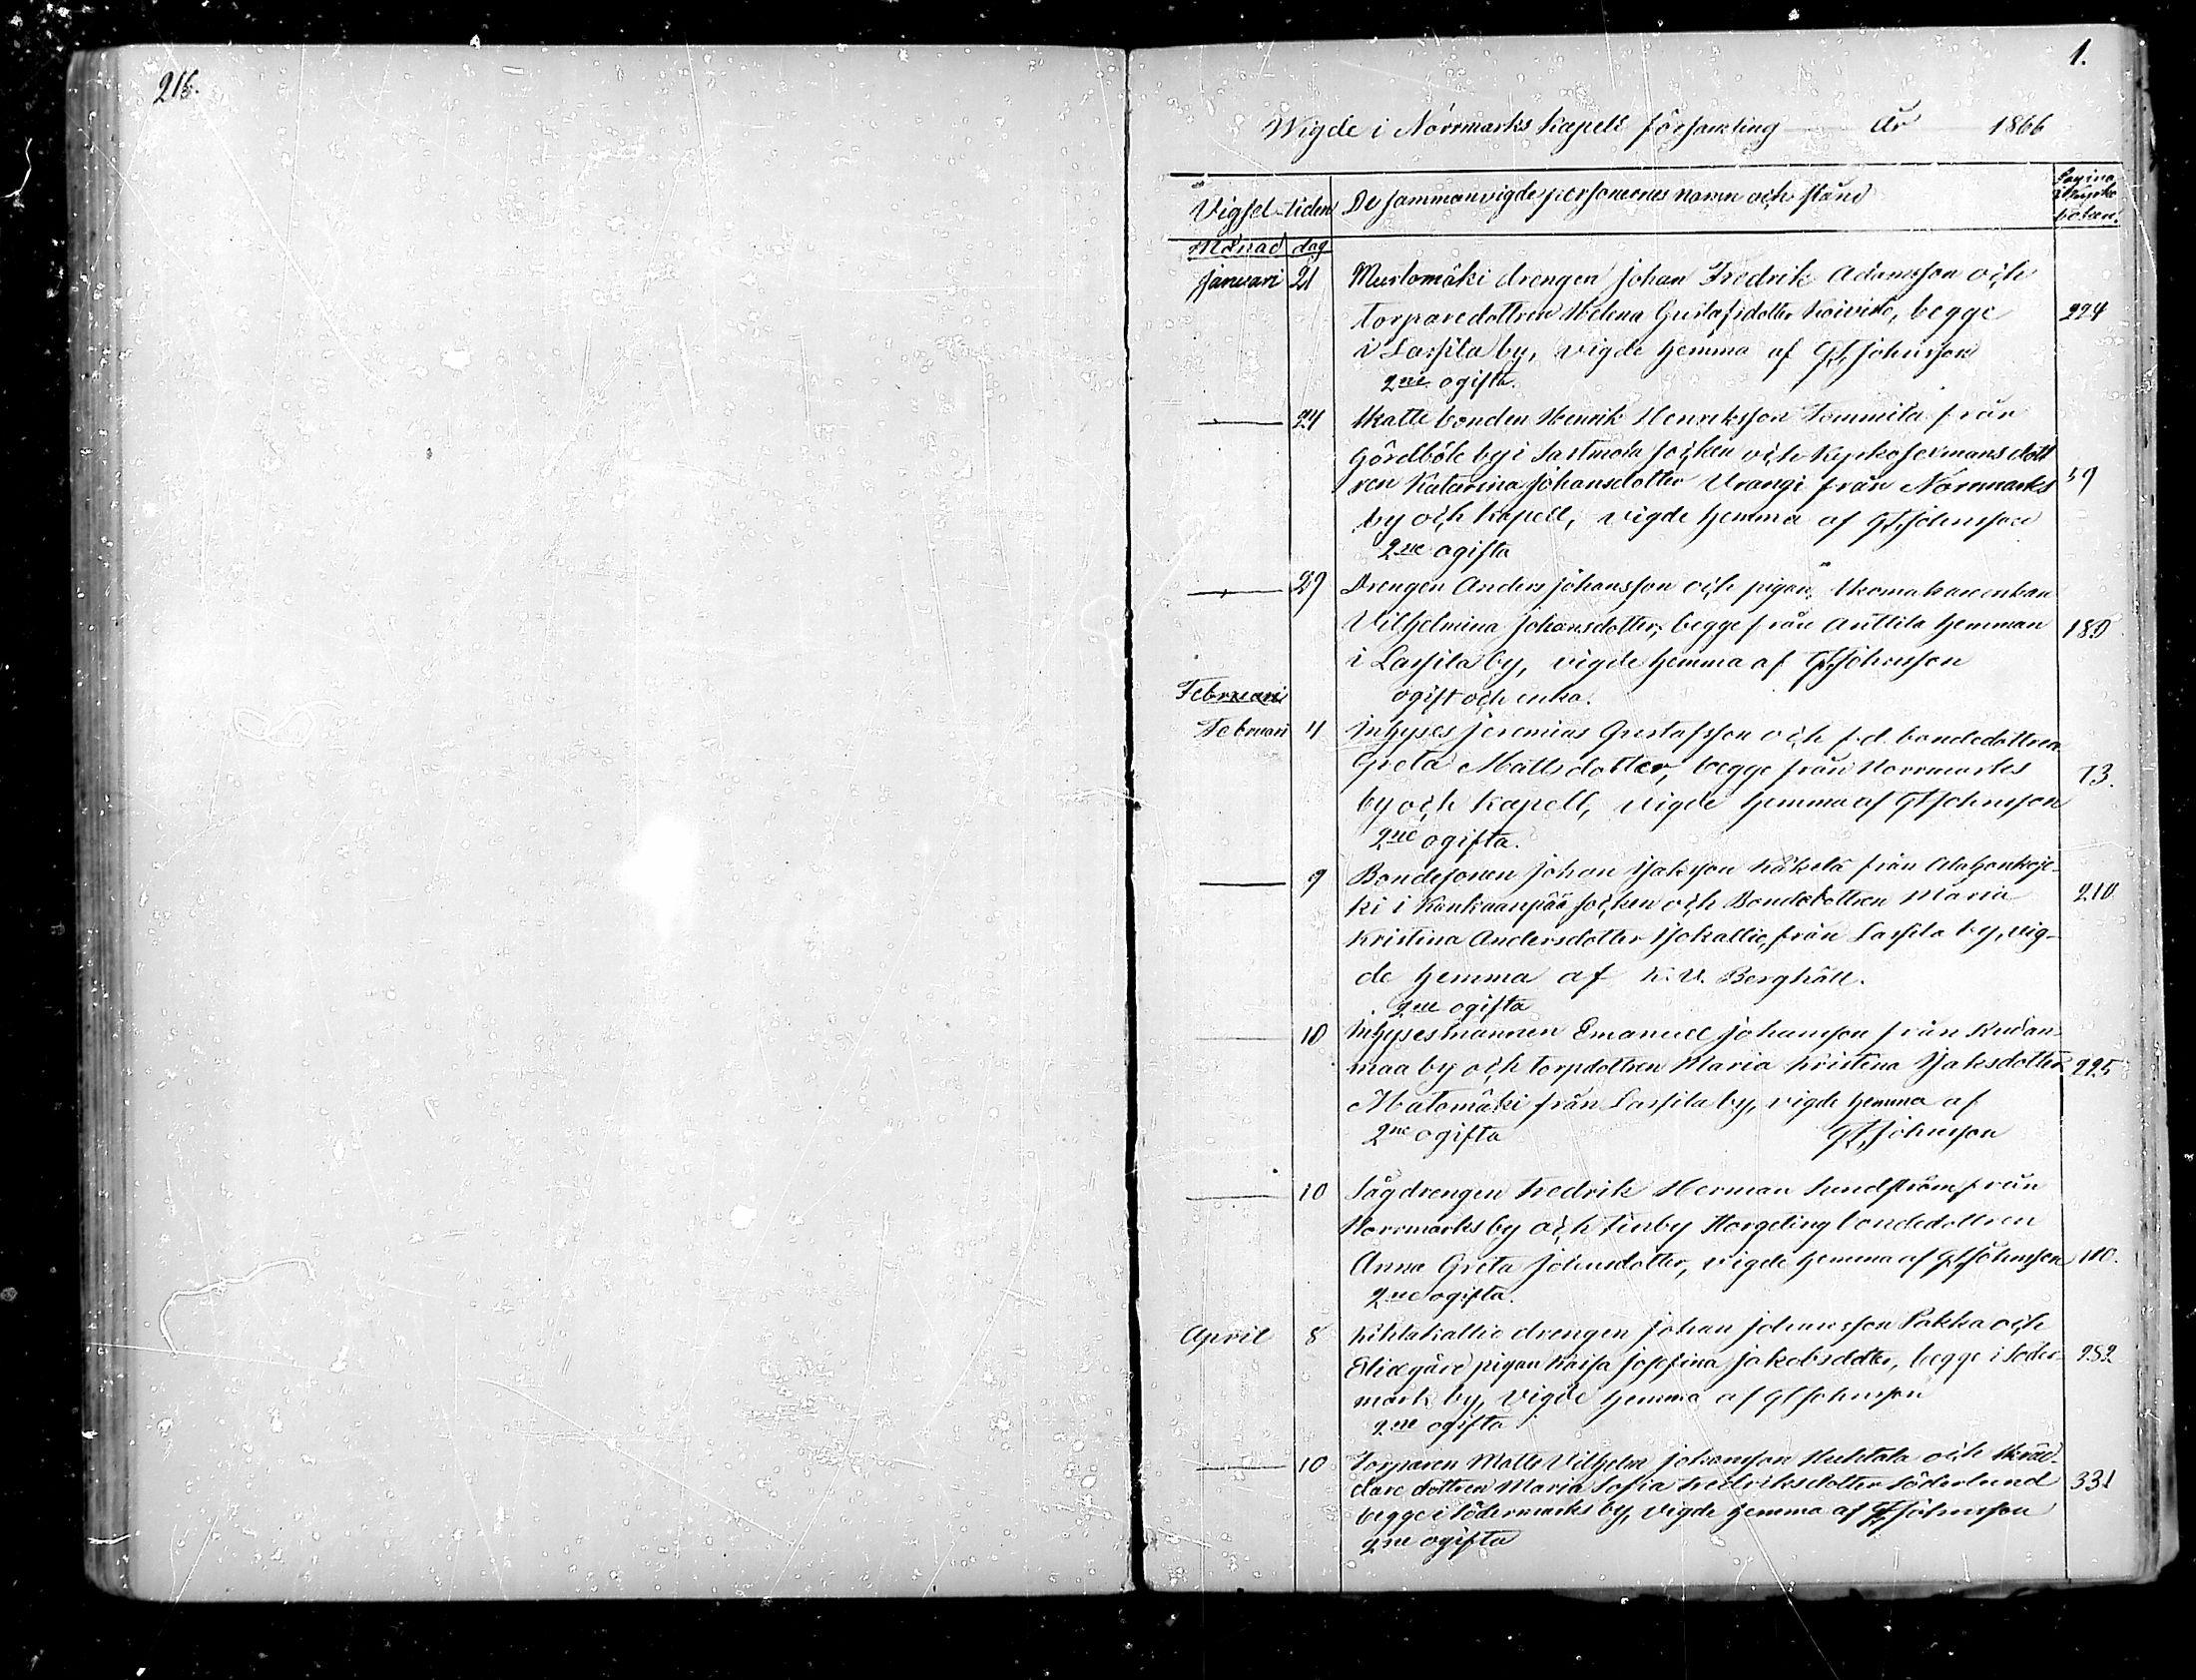 216.
1.
Wigde i Norrmarks Kapell församling År 1866
Vigsel-tiden De sammanvigde personernes namn och stånd Pagina i Kyrkoboken.
Månad dag
Januari 21 Mustomäki drengen Johan Fredrik Adamsson och
torparedottren Helena Gustafsdotter Koivisto, begge 224
i Lassila by, vigde hemma af G. F. Johnsson
2ne ogifta.
24 Skattebonden Henrik Henriksson Tommila från
Gördböle by i Sastmola socken och Kyrkosexmansdott
ren Katarina Johansdotter Urangi från Norrmarks 59
by och kapell, vigde hemma af G. F. Johnsson
2ne ogifta
29 Drengen Anders Johansson och pigan, skomakareenkan
Vilhelmina Johansdotter, begge från Anttila hemman 180
i Lassila by, vigde hemma af G. F. Johnsson
Februari ogift och enka.
Februari 4 Inhyses Jeremias Gustafsson och f.d. bondedottren
Greta Mattsdotter, begge från Norrmarks 73.
by och kapell, vigde hemma af G F Johnsson
2ne ogifta.
9 Bondesonen Johan Isaksson Näkelä från Alahonkajo-
ki i Kankaanpää socken och Bondedottren Maria 210
Kristina Andersdotter Isokallio, från Lassila by, vig-
de hemma af K. V. Berghäll.
2ne ogifta
10 Inhysesmannen Emanuel Johansson från Kudan-
maa by och torpdottren Maria Kristina Isaksdotter 225
Matomäki från Lassila by, vigde hemma af
2ne ogifta G. F. Johnsson
10 Sågdrengen Fredrik Herman Sundström från
Norrmarks by och Finby Horgeling bondedottren
Anna Greta Johansdotter, vigde hemma af G F Johnsson 110.
2ne ogifta.
April 8 Kihlakallio drengen Johan Johansson Pakka och
pigan Kaisa Josefina Jakobsdotter, begge i Söder- 282
mark by, vigde hemma af G F Johnsson
2ne ogifta
10 Torparen Matts Vilhelm Johansson Huhtala och Skräd-
dare dottren Maria Sofia Fredriksdotter Söderlund 331
begge i Södermarks by, vigde hemma af G. F. Johnsson
2ne ogifta